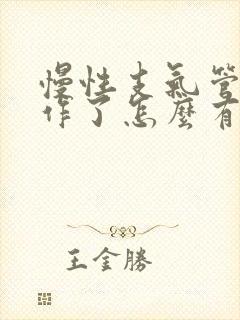 慢性支氣管
作了怎麼有
王金勝